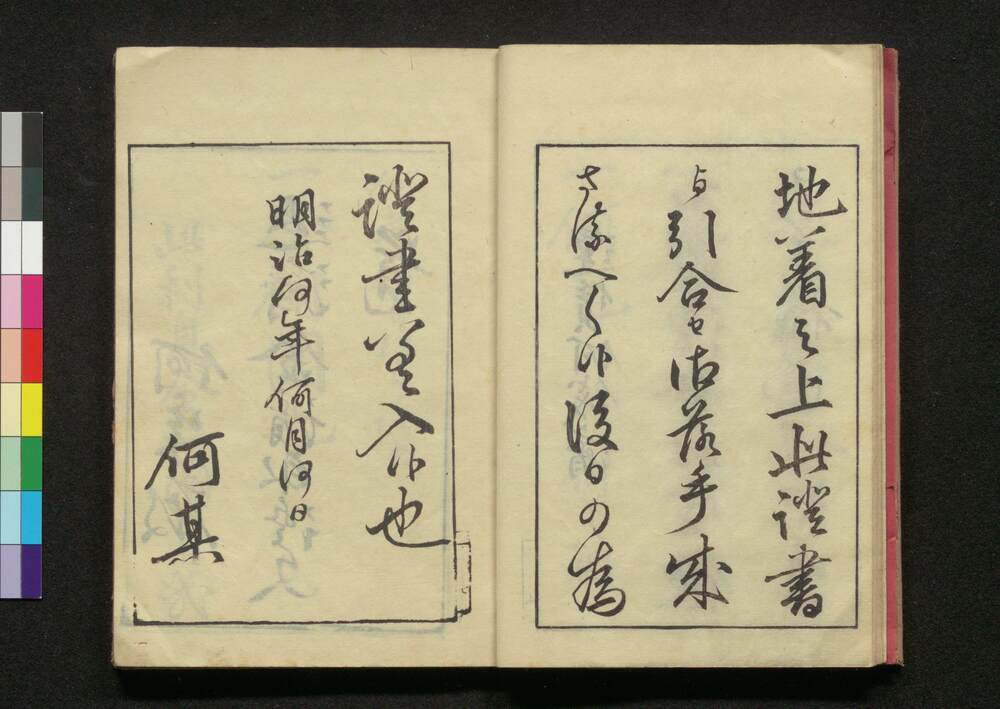 地着之上此證書
与引合セ御落手成
さ流へく候後日の為
證書差入候也
明治何年何月何日
何某